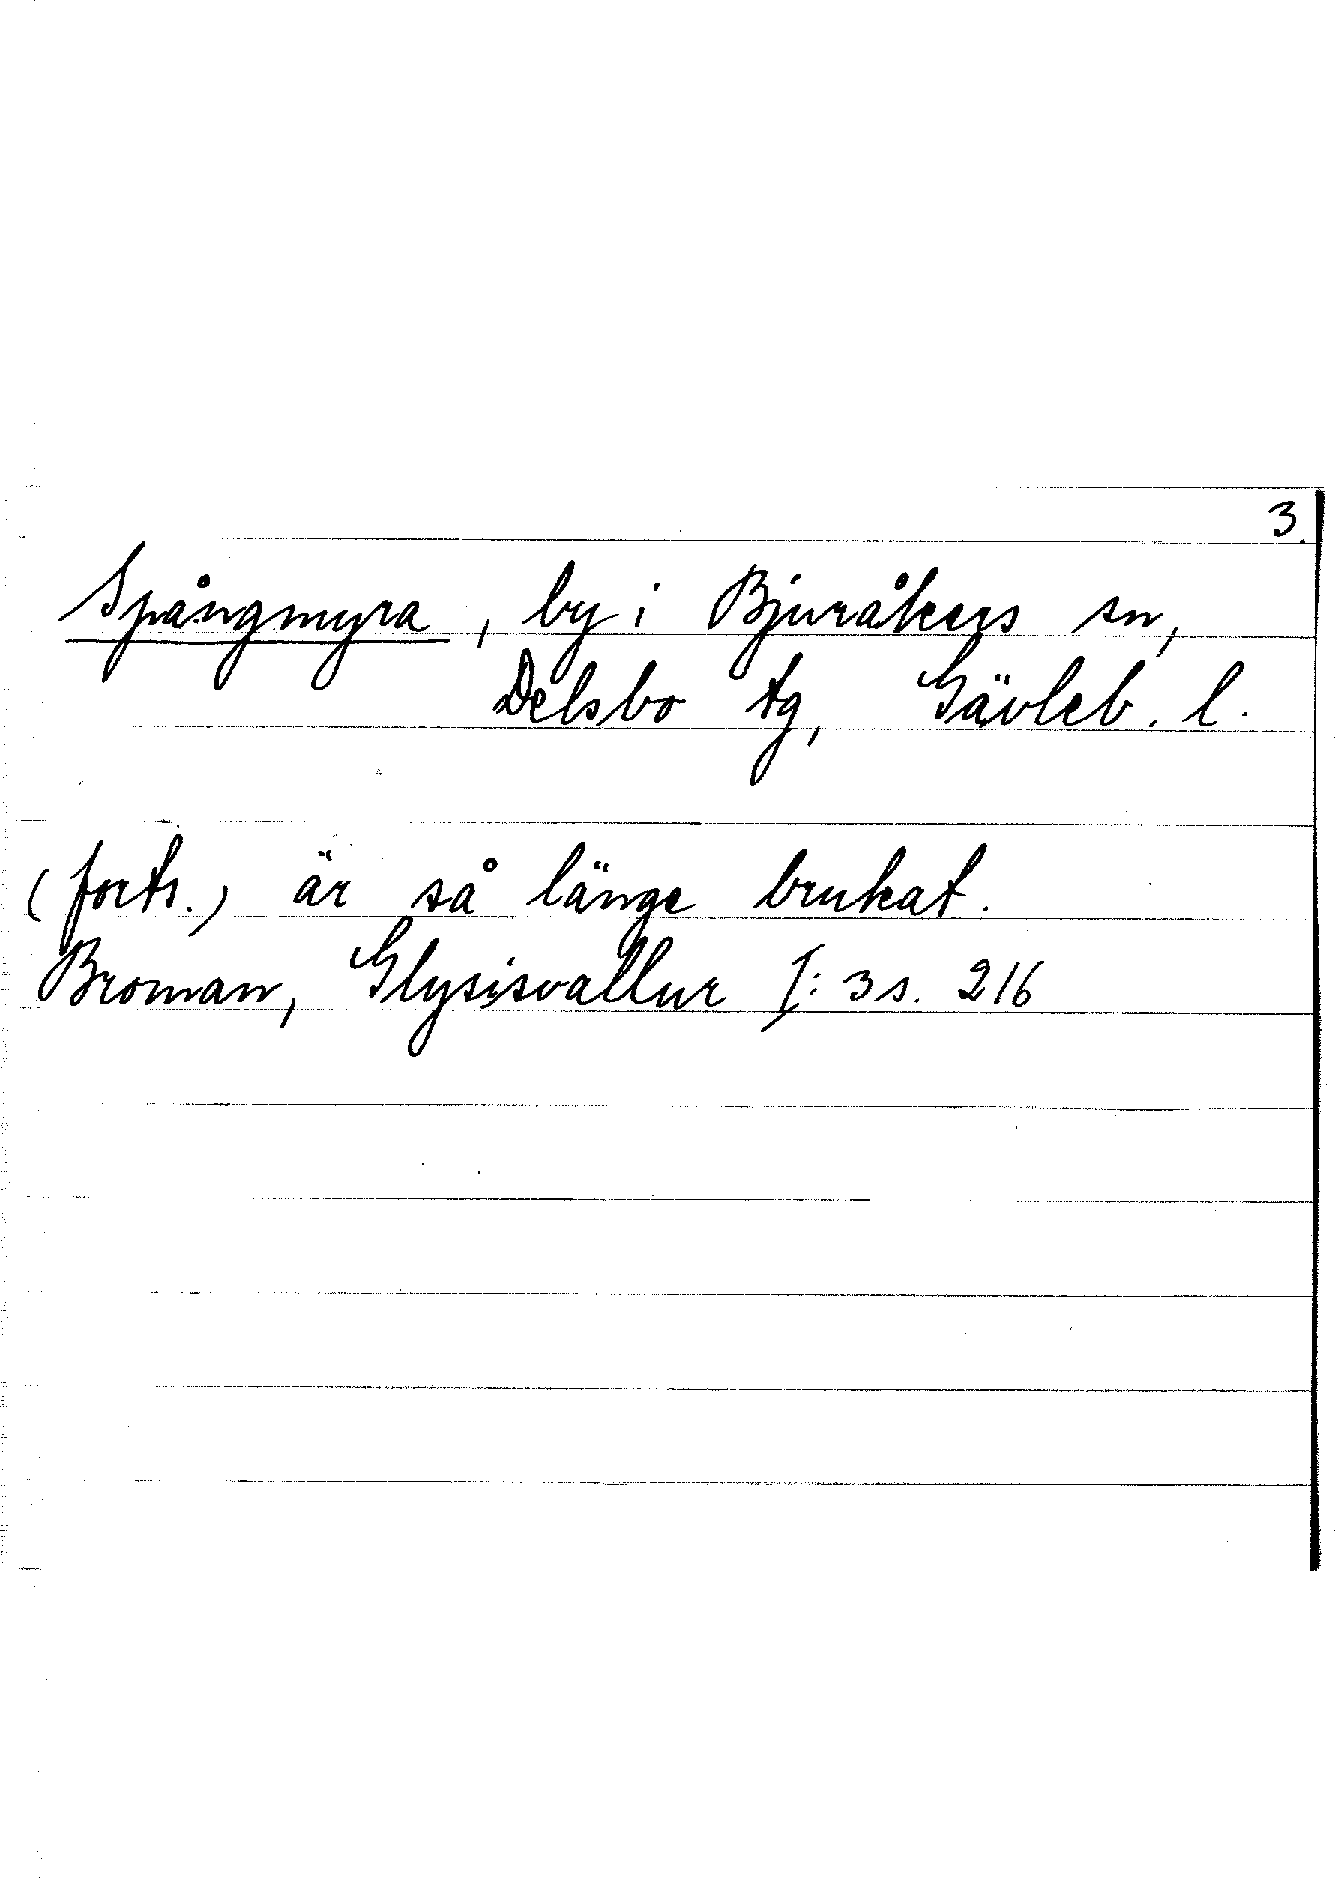 3.
Spångmyra, by i Bjuråkers sn,
Delsbo tg, Gävleb. l.
(forts.) är så länge brukat.
Broman, Glysisvallur I: 3 s. 216